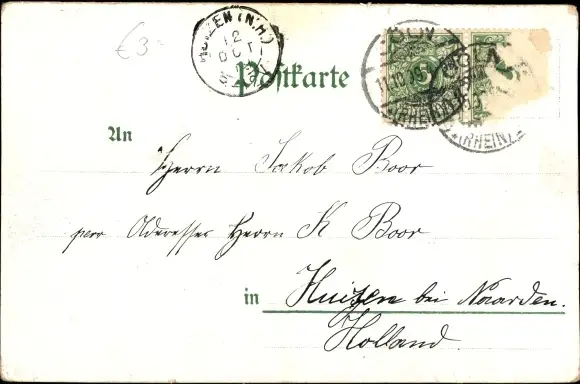 € 3-
HUIZEN (N.H.)
12
OCT
Postkarte
11.10.
(RHEIN)
CÖLN
(RHEIN)
5
An
Herrn Jakob Boor
perr Aderesser Herrn K Boor
in Huizen bei Naarden.
Holland.